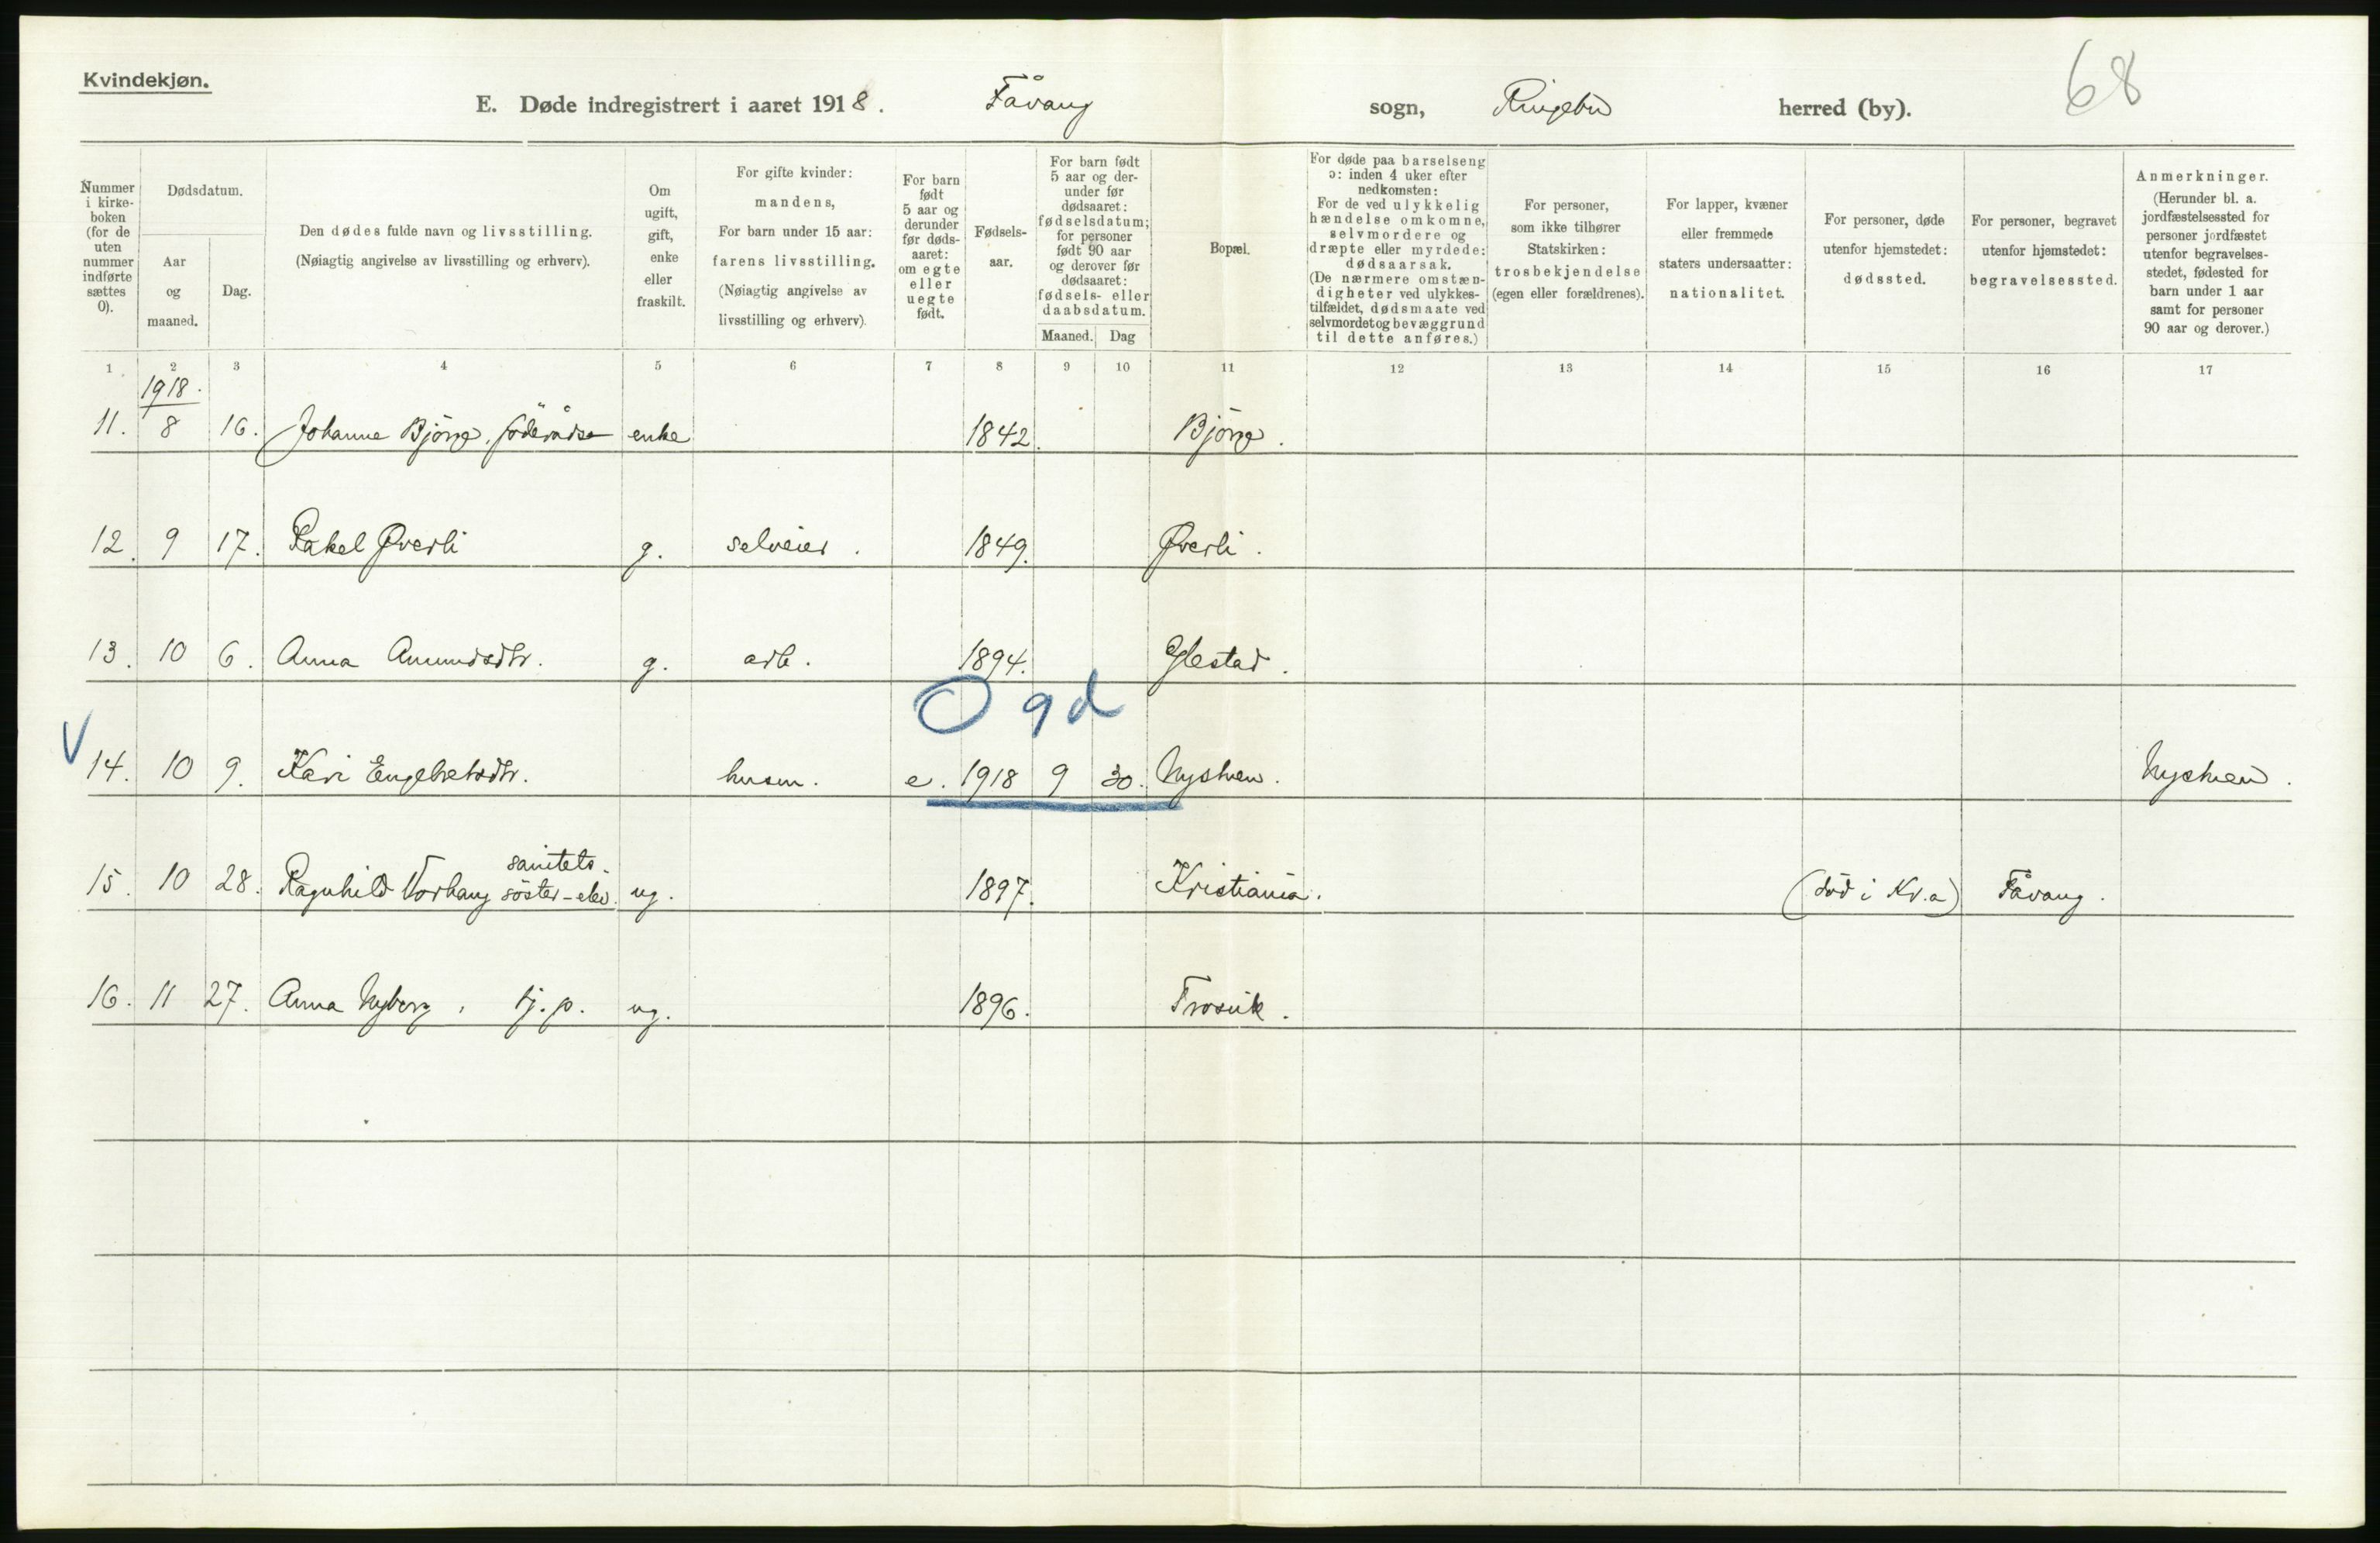 Kvindekjøn.
68
E. Døde indregistrert i aaret 1918. Fåvang sogn, Ringebu herred (by).
Nummer i kirke-boken (for de uten nummer indførte sættes 0).
Dødsdatum.
Aar og maaned.
Dag.
Den dødes fulde navn og livsstilling.
(Nøiagtig angivelse av livsstilling og erhverv).
Om ugift, gift, enke eller fraskilt.
For gifte kvinder:
mandens,
For barn under 15 aar:
farens livsstilling.
(Nøiagtig angivelse av
livsstilling og erhverv).
For barn født 5 aar og derunder før døds-aaret: om egte eller uegte født.
Fødsels-aar.
For barn født 5 aar og der-under før dødsaaret: fødselsdatum; for personer født 90 aar og derover før dødsaaret: fødsels- eller daabsdatum.
Maaned. Dag
Bopæl.
For døde paa barselseng ɔ: inden 4 uker efter nedkomsten: For de ved ulykkelig hændelse omkomne, selvmordere og dræpte eller myrdede: dødsaarsak. (De nærmere omstæn-digheter ved ulykkes-tilfældet, dødsmaate ved selvmordet og bevæggrund til dette anføres.)
For personer, som ikke tilhører Statskirken: trosbekjendelse (egen eller forældrenes).
For lapper, kvæner eller fremmede staters undersaatter: nationalitet.
For personer, døde utenfor hjemstedet: dødssted.
For personer, begravet utenfor hjemstedet: begravelsessted.
Anmerkninger.
(Herunder bl. a. jordfæstelsessted for personer jordfæstet utenfor begravelses-stedet, fødested for barn under 1 aar samt for personer 90 aar og derover.)
1 2 3 4 5 6 7 8 9 10 11 12 13 14 15 16 17
1918.
11. 8 16. Johanne Björge, föderåds enke 1842. Björge.
12. 9 17. Rakel Øverli g. selveier. 1849. Øverli.
13. 10 6. Anna Amundsdtr. g. arb. 1894. Glestad.
0 9 d
V 14. 10 9. Kari Engebretsdtr. husm. e. 1918 9 30. Nystuen. Nystuen.
sanitets-
15. 10 28. Ragnhild Vorhang söster-elev. ug. 1897. Kristiania. (död i Kr.a) Fåvang.
16. 11 27. Anna Nyberg, tj.p. ug. 1896. Trosvik.